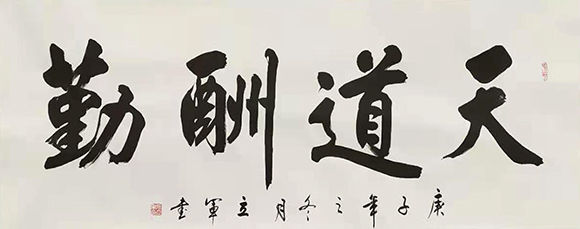 天道酬勤
庚子年之冬月立軍書